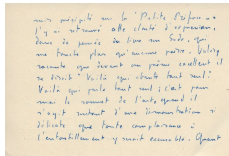 mis précipité sur la "Petite Préface".
J'y ai retrouvé cette clarté d'expression,
dans la pensée
me touche plus qu'aucune autre. Valéry
raconte que devant un poème excellent il
se disait "Voilà qui chante tout seul"
Voilà qui parle tout seul; c'est pour
moi le sommet de l'art, quand il
s'agit surtout d'une démonstration si
délicate que toute complaisance à
l'entortillement y serait sensible. Quant